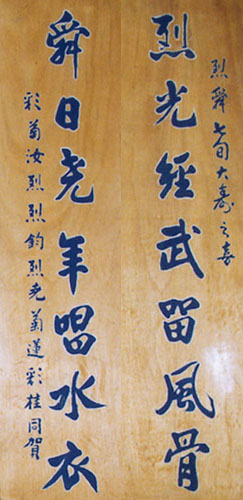 烈舜七旬大寿之喜
烈光經武留風骨
舜日尧年唱水衣
彩菊汝烈烈鈞烈尧菊蓮彩桂同賀